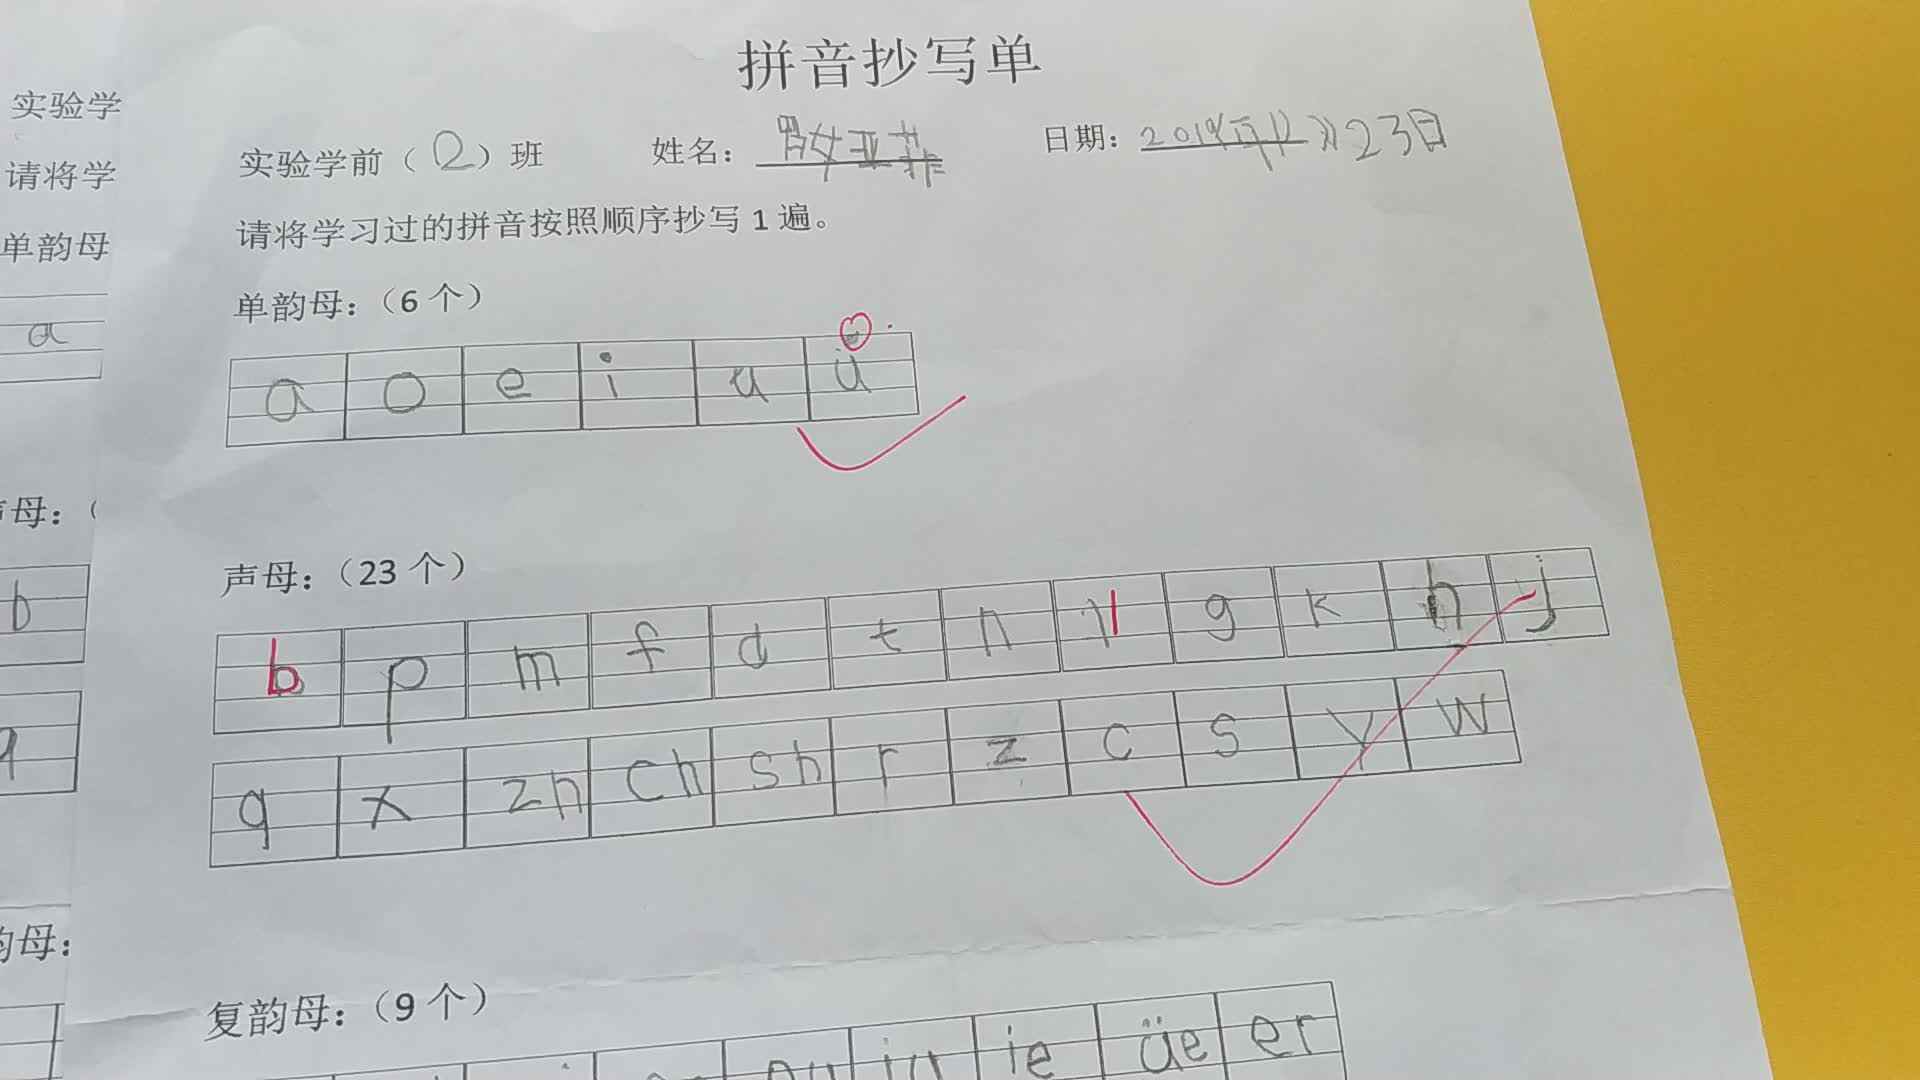 拼音抄写单
实验学前（2）班 姓名： 日期：2019年12月23日
请将学习过的拼音按照顺序抄写1遍。
单韵母：（6个）
a o e i u ü
声母：（23个）
b p m f d t n l g k h j
q x zh ch sh r z c s y w
复韵母：（9个）
ie üe er
实验学
请将学
单韵母
a
声母：（
b
q
韵母：